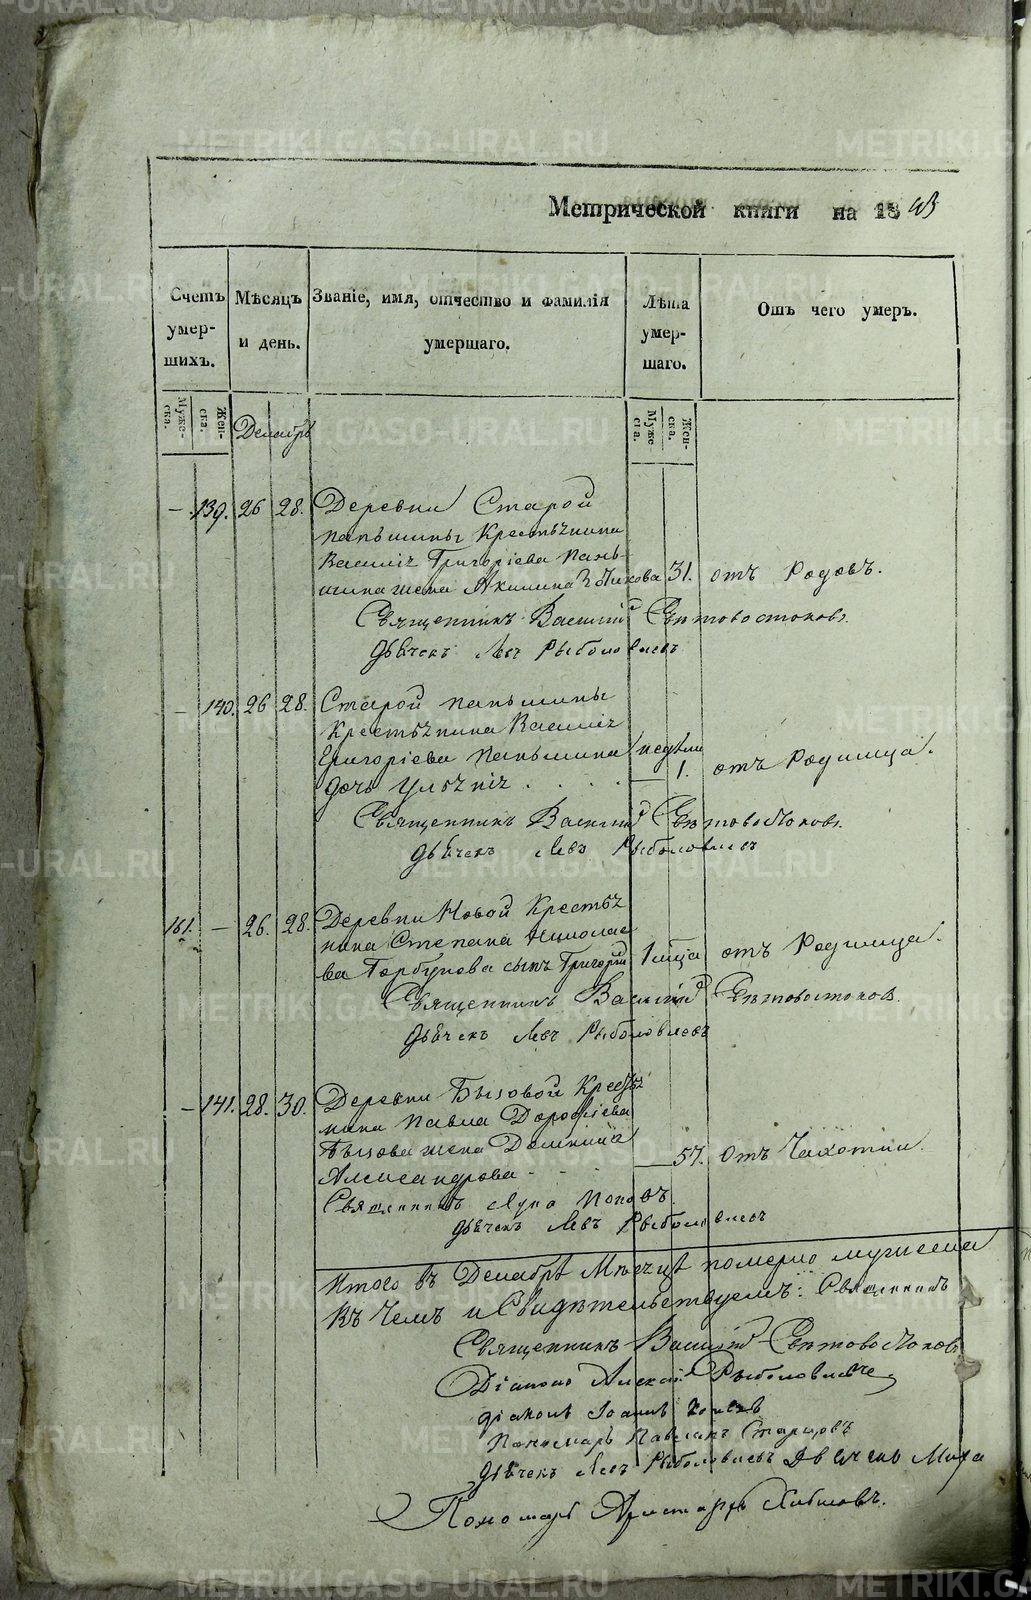 Метрической книги на 1843
Счетъ умершихъ.
Мужеска.
Женска.
Мѣсяцъ и день.
Званіе, имя, отчество и фамилія умершаго.
Лѣта умершаго.
Мужеска.
Женска.
Отъ чего умеръ.
Декабрь
— 139. 26 28. Деревни Старой
Паньшины Крестьянина
Василія Григоріева Пань-
шина жена Акилина 31. отъ родовъ.
Священникъ Василій Свѣтовостоковъ.
Дьячекъ Левъ Рыболовлевъ
— 140. 26 28. Старой Паньшины
Крестьянина Василія
Григоріева Паньшина недѣли
дочь Уліанія . . . 1. отъ родимца.
Священникъ Василій Свѣтовостоковъ.
Дьячекъ Левъ Рыболовлевъ
161. — 26. 28. Деревни Новой Крестья-
нина Степана Николае-
ва Горбунова сынъ Григорій 1 мѣца отъ родимца.
Священникъ Василій Свѣтовостоковъ.
Дьячекъ Левъ Рыболовлевъ
— 141. 28. 30. Деревни Бызовой Крестья-
нина Павла Дорофіева
Бызова жена Домника
Александрова 57. отъ чахотки.
Священникъ Лука Поповъ.
Дьячекъ Левъ Рыболовлевъ
Итого въ Декабрѣ Мѣсяцѣ померло мужеска
Въ чемъ и Свидѣтельствуемъ: Священникъ
Священникъ Василій Свѣтовостоковъ
Діаконъ Алексій Рыболовлевъ
Діаконъ Іоаннъ
Пономарь Старцовъ
Дьячекъ Левъ Рыболовлевъ Дьячекъ
Пономарь Аристархъ
METRIKI.GASO-URAL.RU